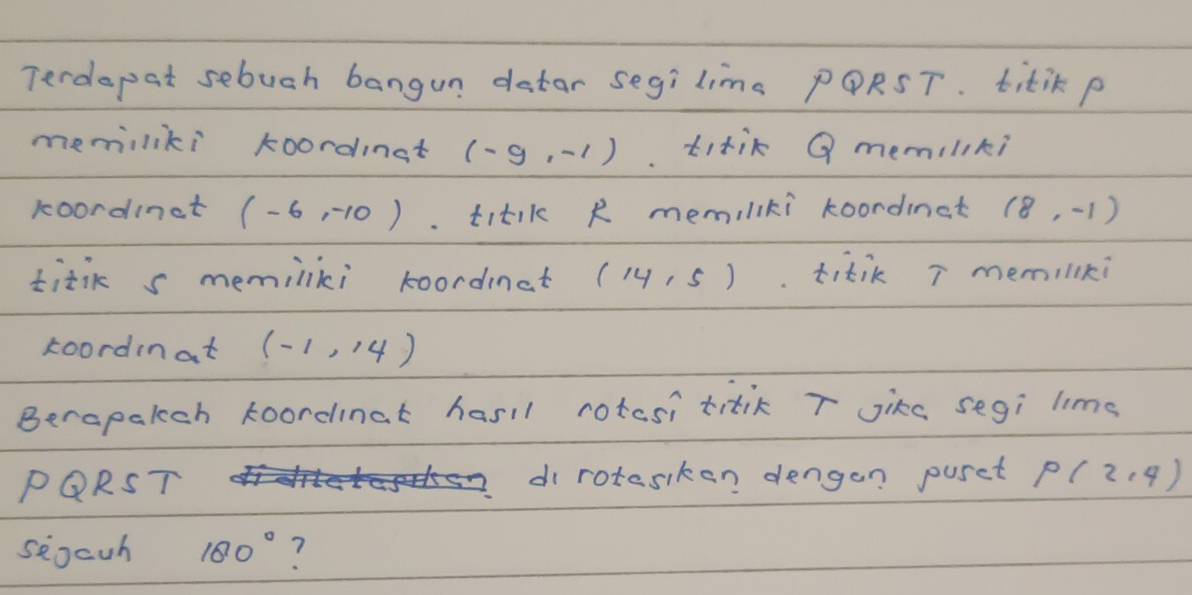 Terdapat sebuah bangun datar segi lima PQRST. titik P
memiliki koordinat (-9,-1). titik Q memiliki
koordinat (-6,-10). titik R memiliki koordinat (8,-1)
titik S memiliki koordinat (14,5). titik T memiliki
koordinat (-1,14)
Berapakah koordinat hasil rotasi titik T jika segi lima
PQRST di rotasikan dengan pusat P(2,4)
sejauh 180°?